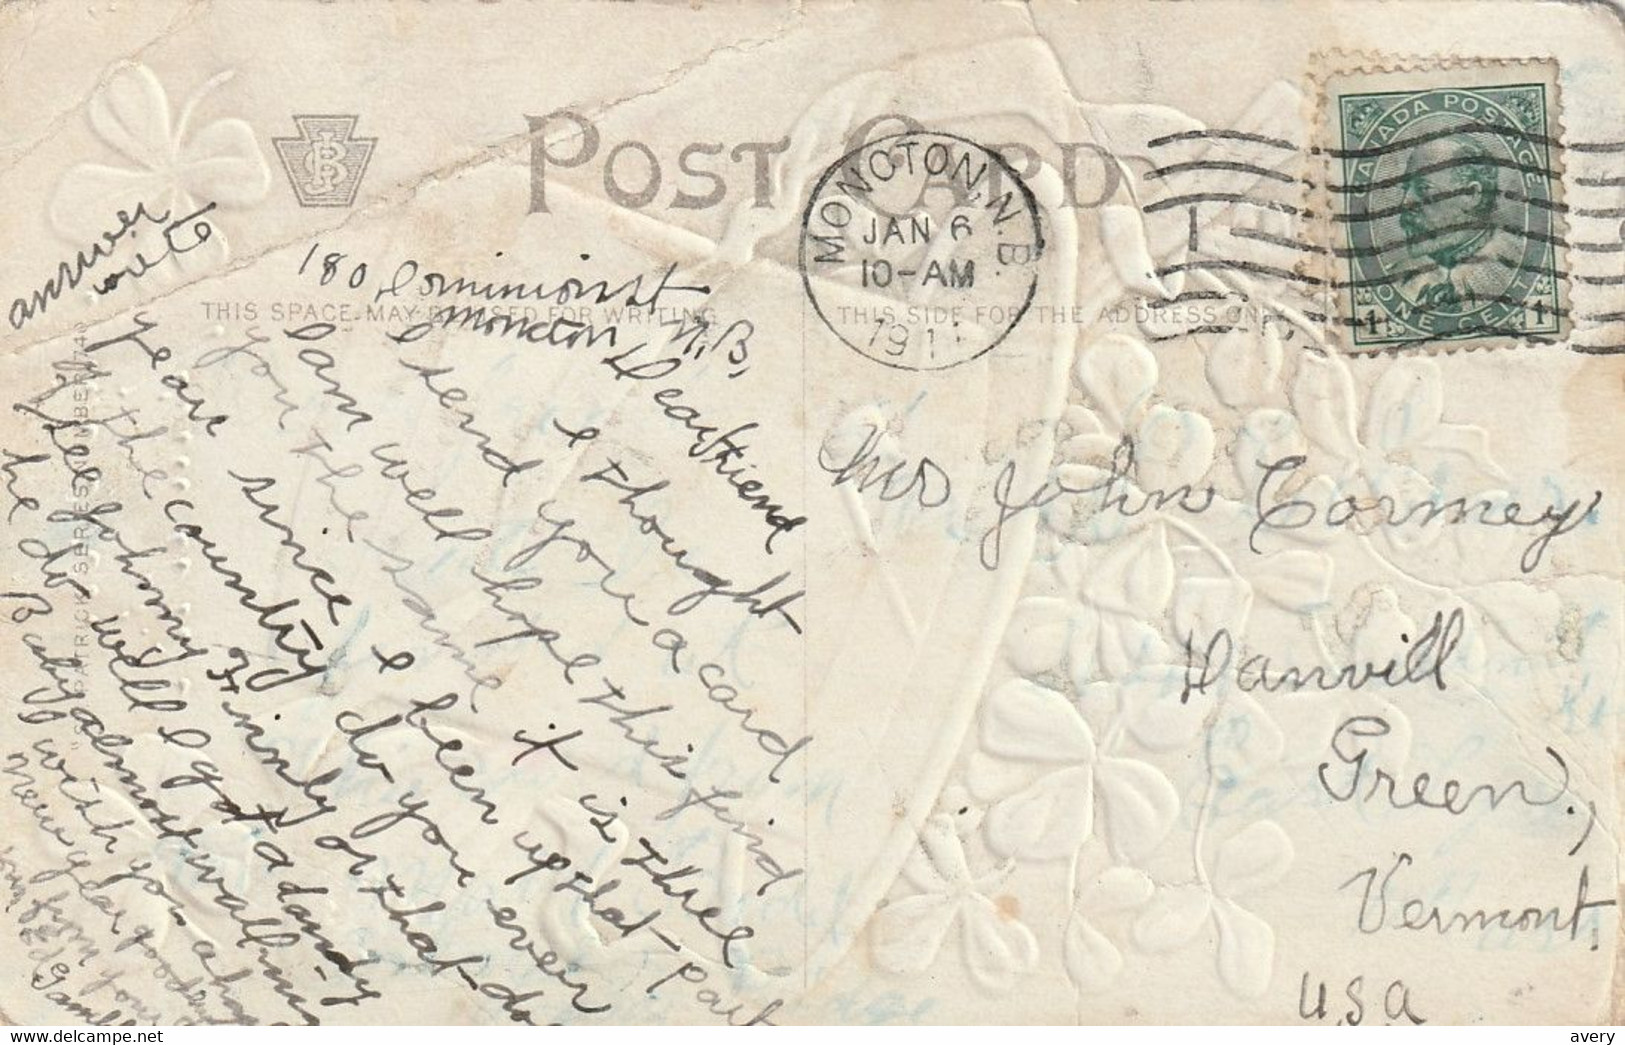 POST CARD
THIS SPACE MAY BE USED FOR WRITING
THIS SIDE FOR THE ADDRESS ONLY
MONCTON, N.B.
JAN 6
10-AM
1911
CANADA POSTAGE
1 ONE CENT 1
answer
180 Dominion st
Moncton N.B.
Dear friend
I thought
I send you a card
I am well hope this find
you the same it is three
year since I been up that part
of the country do you ever
see Johnny Finnly or that do
he do well I got a dandy
Baby almost walking
I wish you a hap
New year good
from your
Ed Gam
Mrs John Cormey
Danvill
Green,
Vermont.
U.S.A
avery